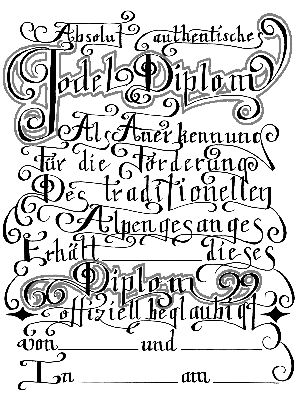 Absolut authentisches
Jodel Diplom
Als Anerkennung
für die Förderung
Des traditionellen
Alpengesanges
Erhält ___________ dieses
Diplom
offiziell beglaubigt
von ___________ und ________
In ___________ am ________